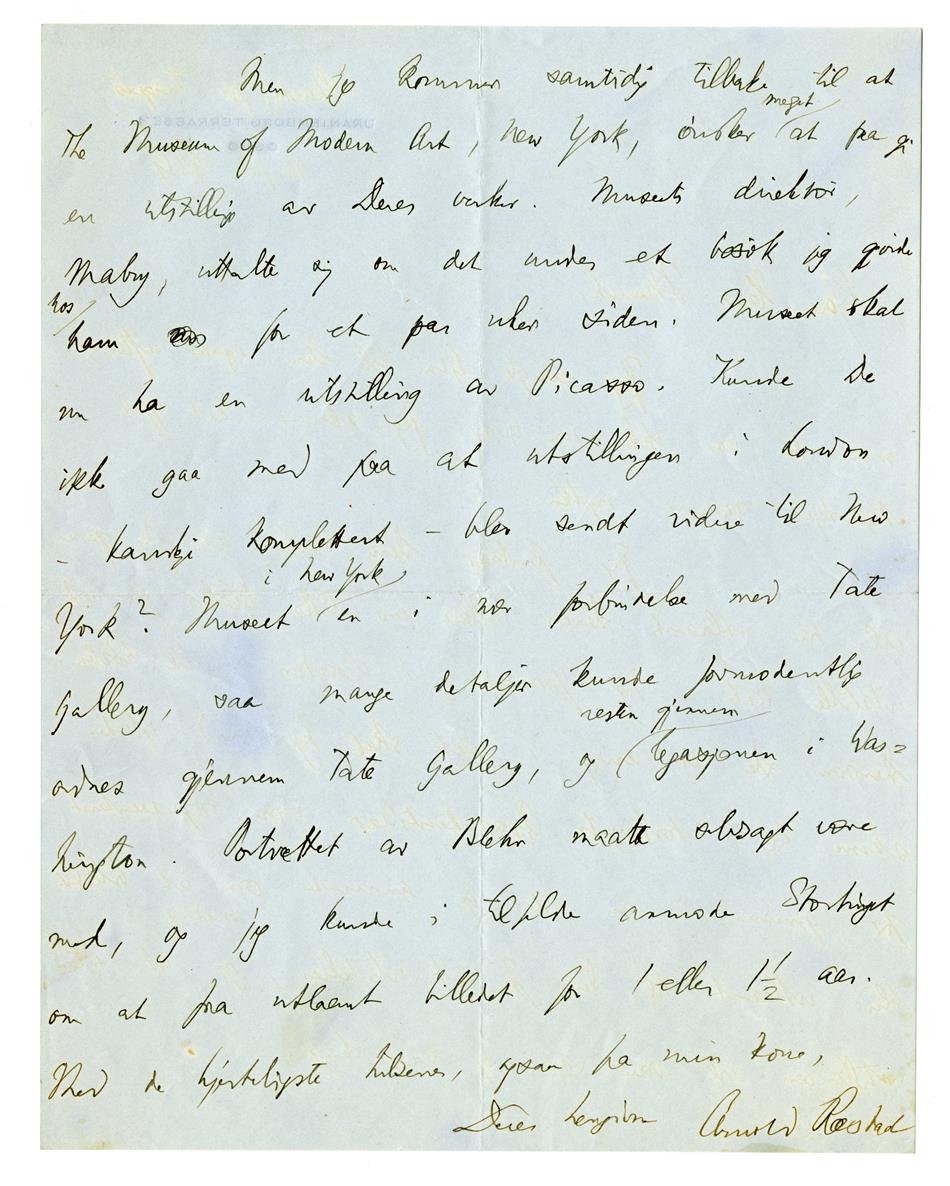 Men jeg kommer samtidig tilbake til at
meget
The Museum of Modern Art, New York, ønsker at faa gi
en utstilling av Deres verker. Museets direktør,
Mabry, uttalte sig om det under et besøk jeg gjorde
hos
ham for et par uker siden. Museet skal
nu ha en utstilling av Picasso. Kunde De
ikke gaa med paa at utstillingen i London
- kanskje komplettert - blev sendt videre til New
i New York
York? Museet er i nær forbindelse med Tate
Gallery, saa mange detaljer kunde formodentlig
resten gjennem
ordnes gjennem Tate Gallery, og legasjonen i Was=
hington. Portrettet av Blehr maatte selvsagt være
med, og jeg kunde i tilfelde anmode Stortinget
om at faa utlaant billedet for 1 eller 1 1/2 aar.
Med de hjerteligste hilsener, ogsaa fra min kone,
Deres hengivne Arnold Ræstad